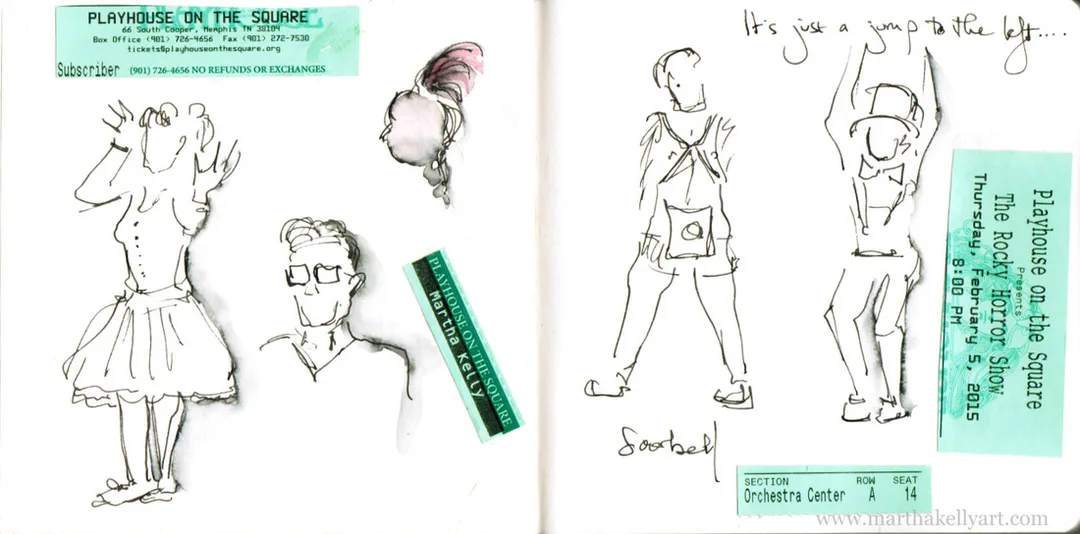 PLAYHOUSE ON THE SQUARE
66 South Cooper, Memphis TN 38104
Box Office (901) 726-4656 Fax (901) 272-7530
tickets@playhouseonthesquare.org
Subscriber (901) 726-4656 NO REFUNDS OR EXCHANGES
PLAYHOUSE ON THE SQUARE
Martha Kelly
It's just a jump to the left....
Playhouse on the Square
Presents
The Rocky Horror Show
Thursday, February 5, 2015
8:00 PM
Doorbell
SECTION ROW SEAT
Orchestra Center A 14
www.marthakellyart.com